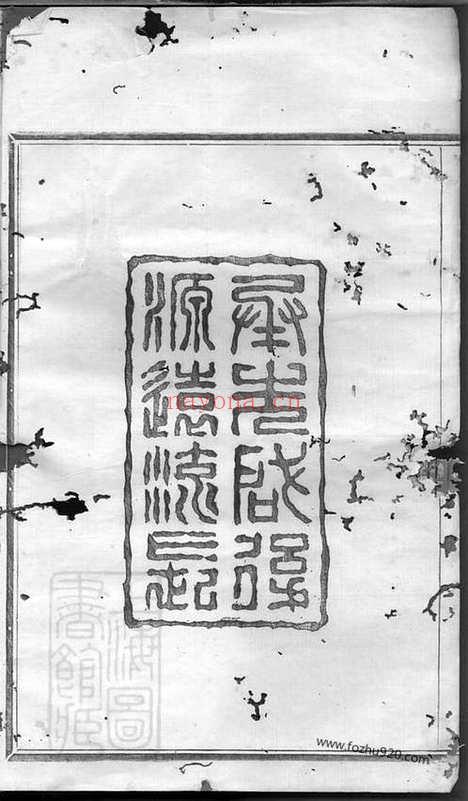 承先啟後
源遠流長
nayona.cn
www.fozhu920.com